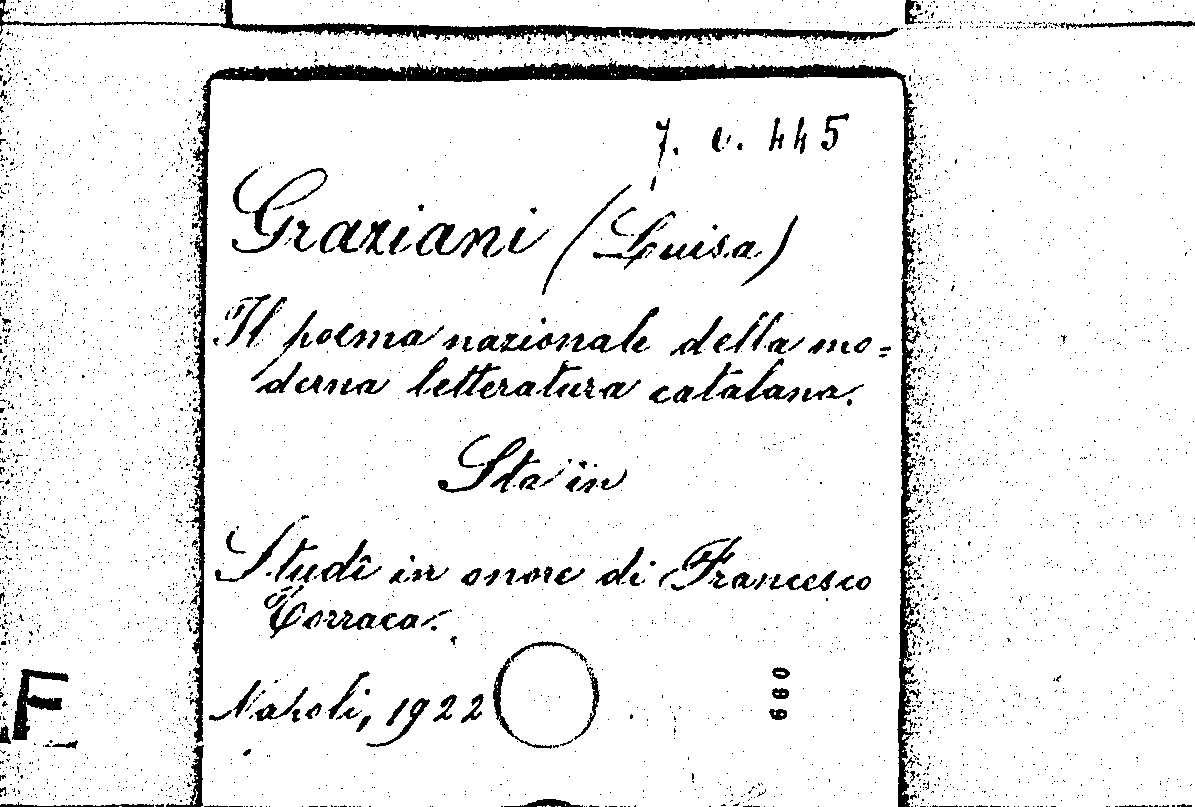 7. C. 445
Graziani (Luisa)
Il poema nazionale della mo=
derna letteratura catalana.
Sta in
Studî in onore di Francesco
Torraca.
Napoli, 1922
660
F